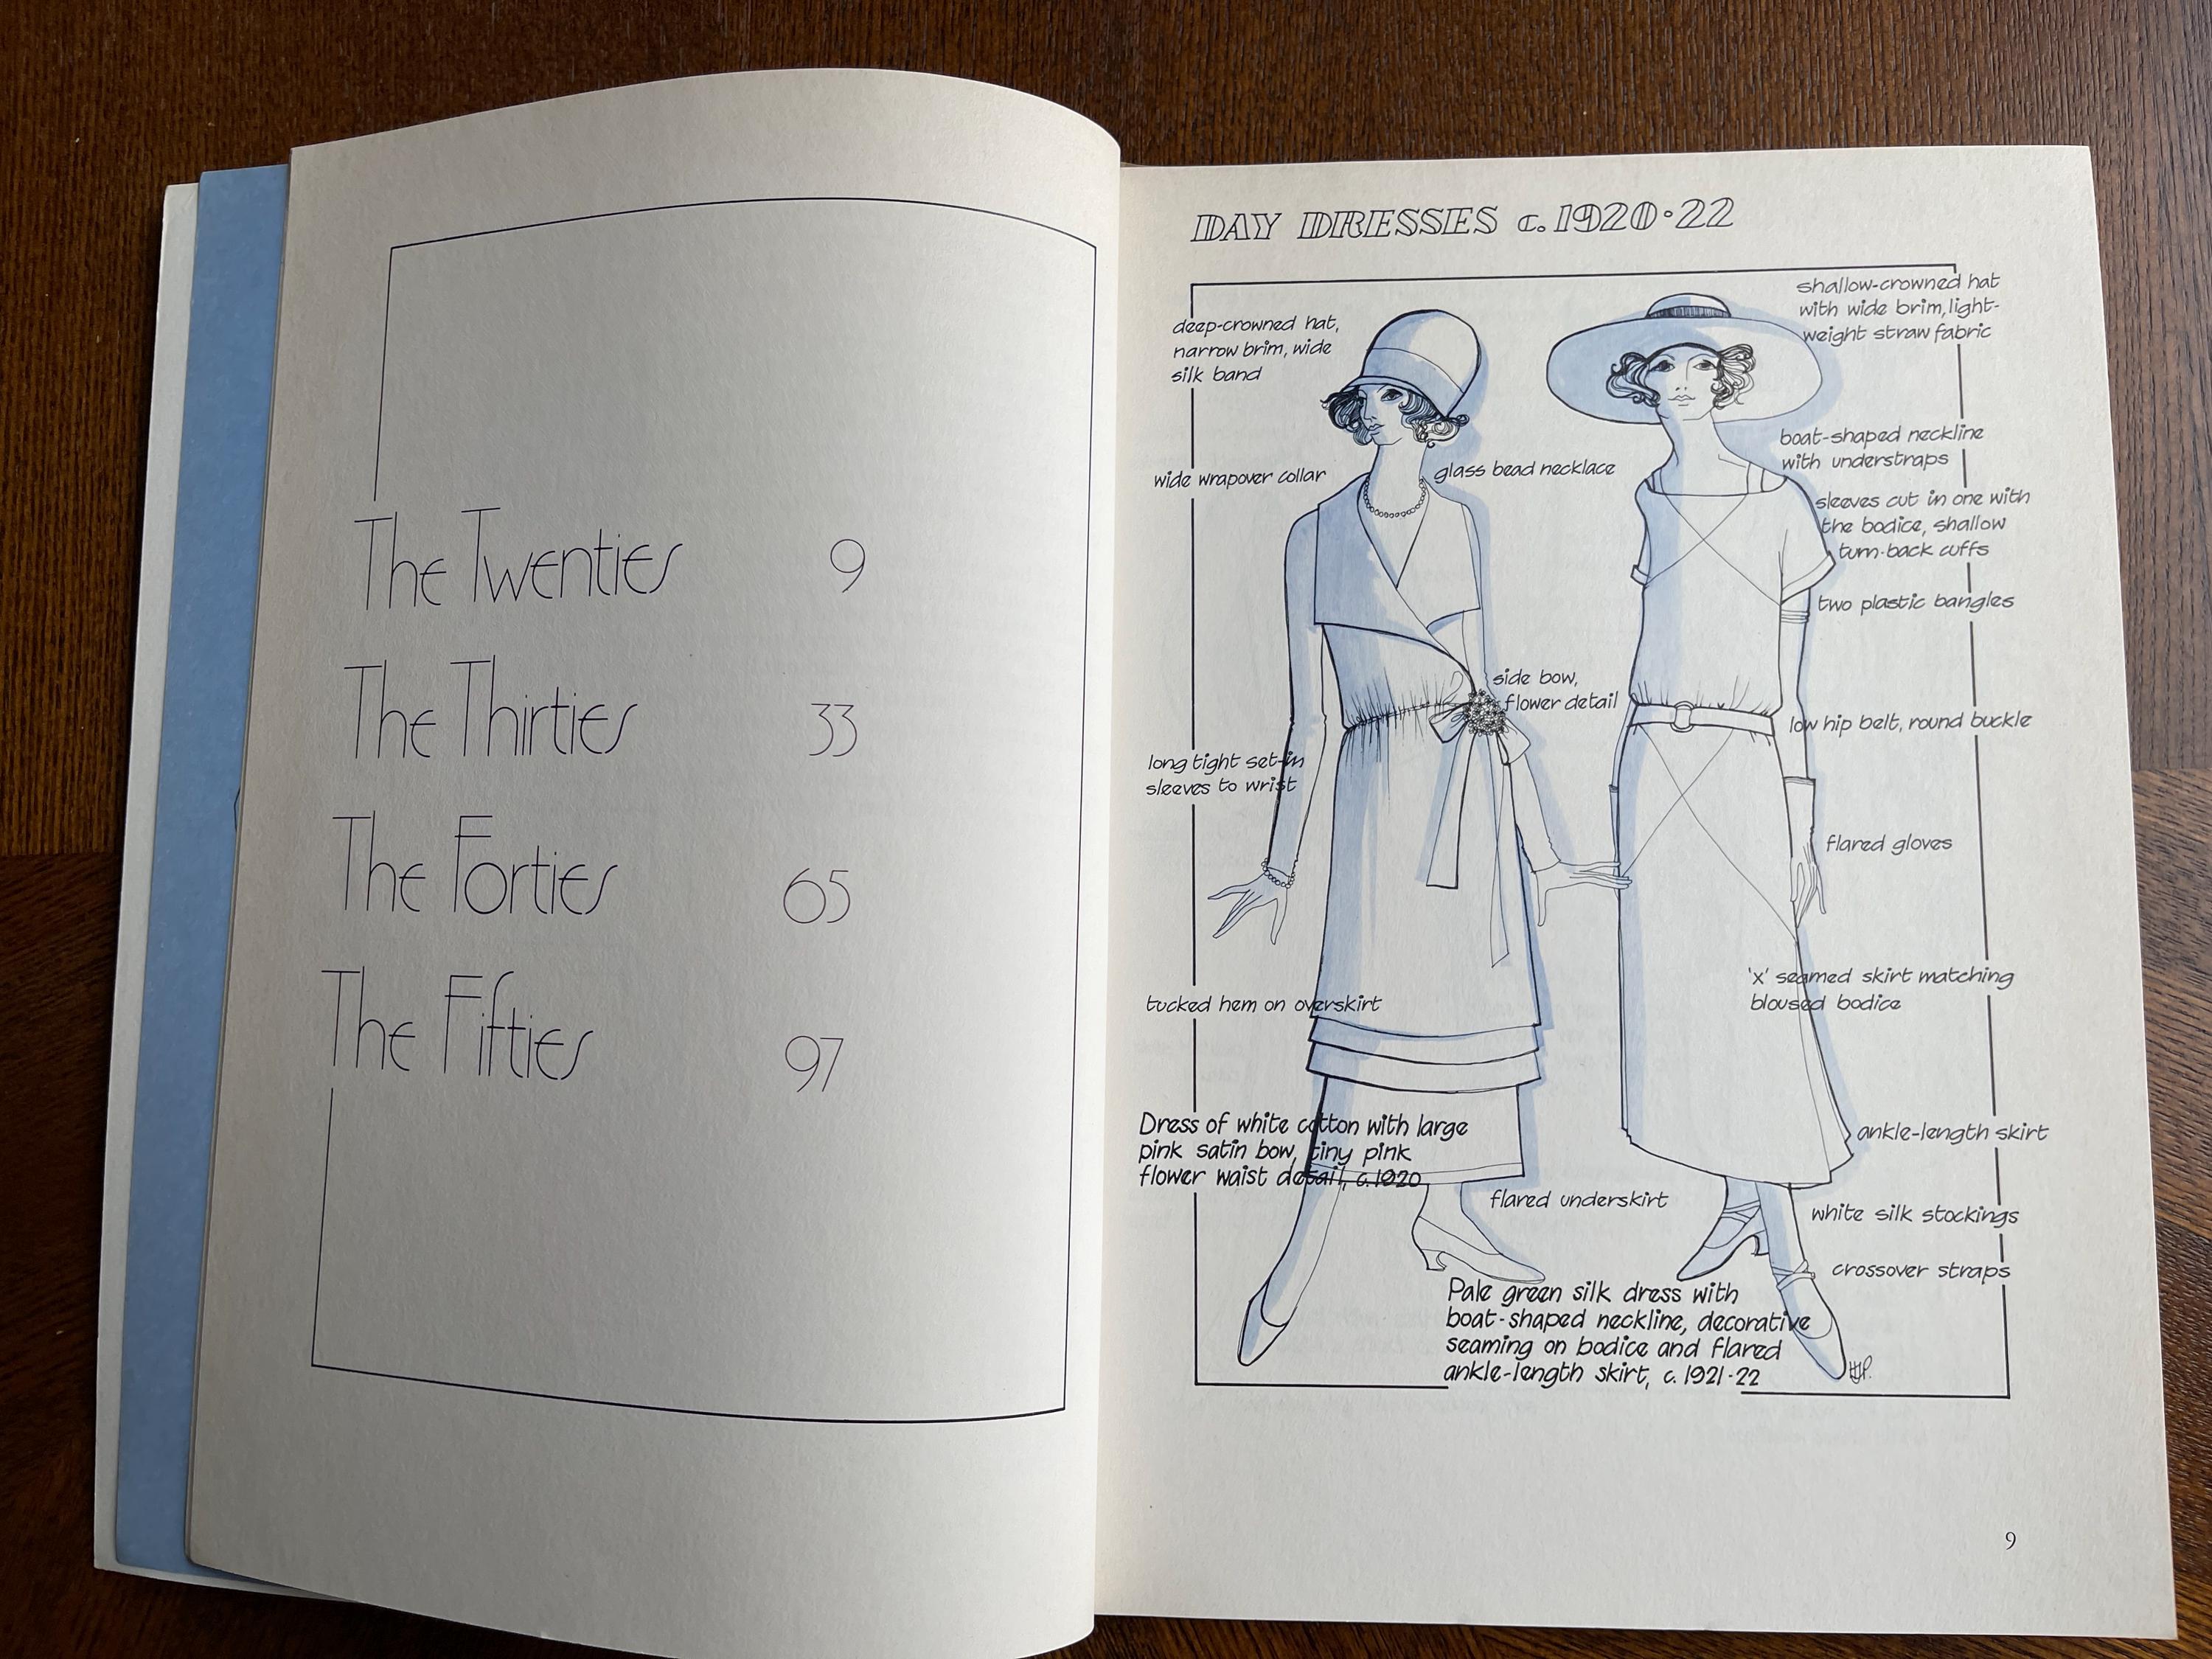 The Twenties 9
The Thirties 33
The Forties 65
The Fifties 97
DAY DRESSES c.1920·22
deep-crowned hat,
narrow brim, wide
silk band
wide wrapover collar
glass bead necklace
side bow,
flower detail
long tight set-in
sleeves to wrist
tucked hem on overskirt
Dress of white cotton with large
pink satin bow, tiny pink
flower waist detail, c.1920
flared underskirt
shallow-crowned hat
with wide brim, light-
weight straw fabric
boat-shaped neckline
with understraps
sleeves cut in one with
the bodice, shallow
turn-back cuffs
two plastic bangles
low hip belt, round buckle
flared gloves
'x' seamed skirt matching
bloused bodice
ankle-length skirt
white silk stockings
crossover straps
Pale green silk dress with
boat-shaped neckline, decorative
seaming on bodice and flared
ankle-length skirt, c.1921-22
9